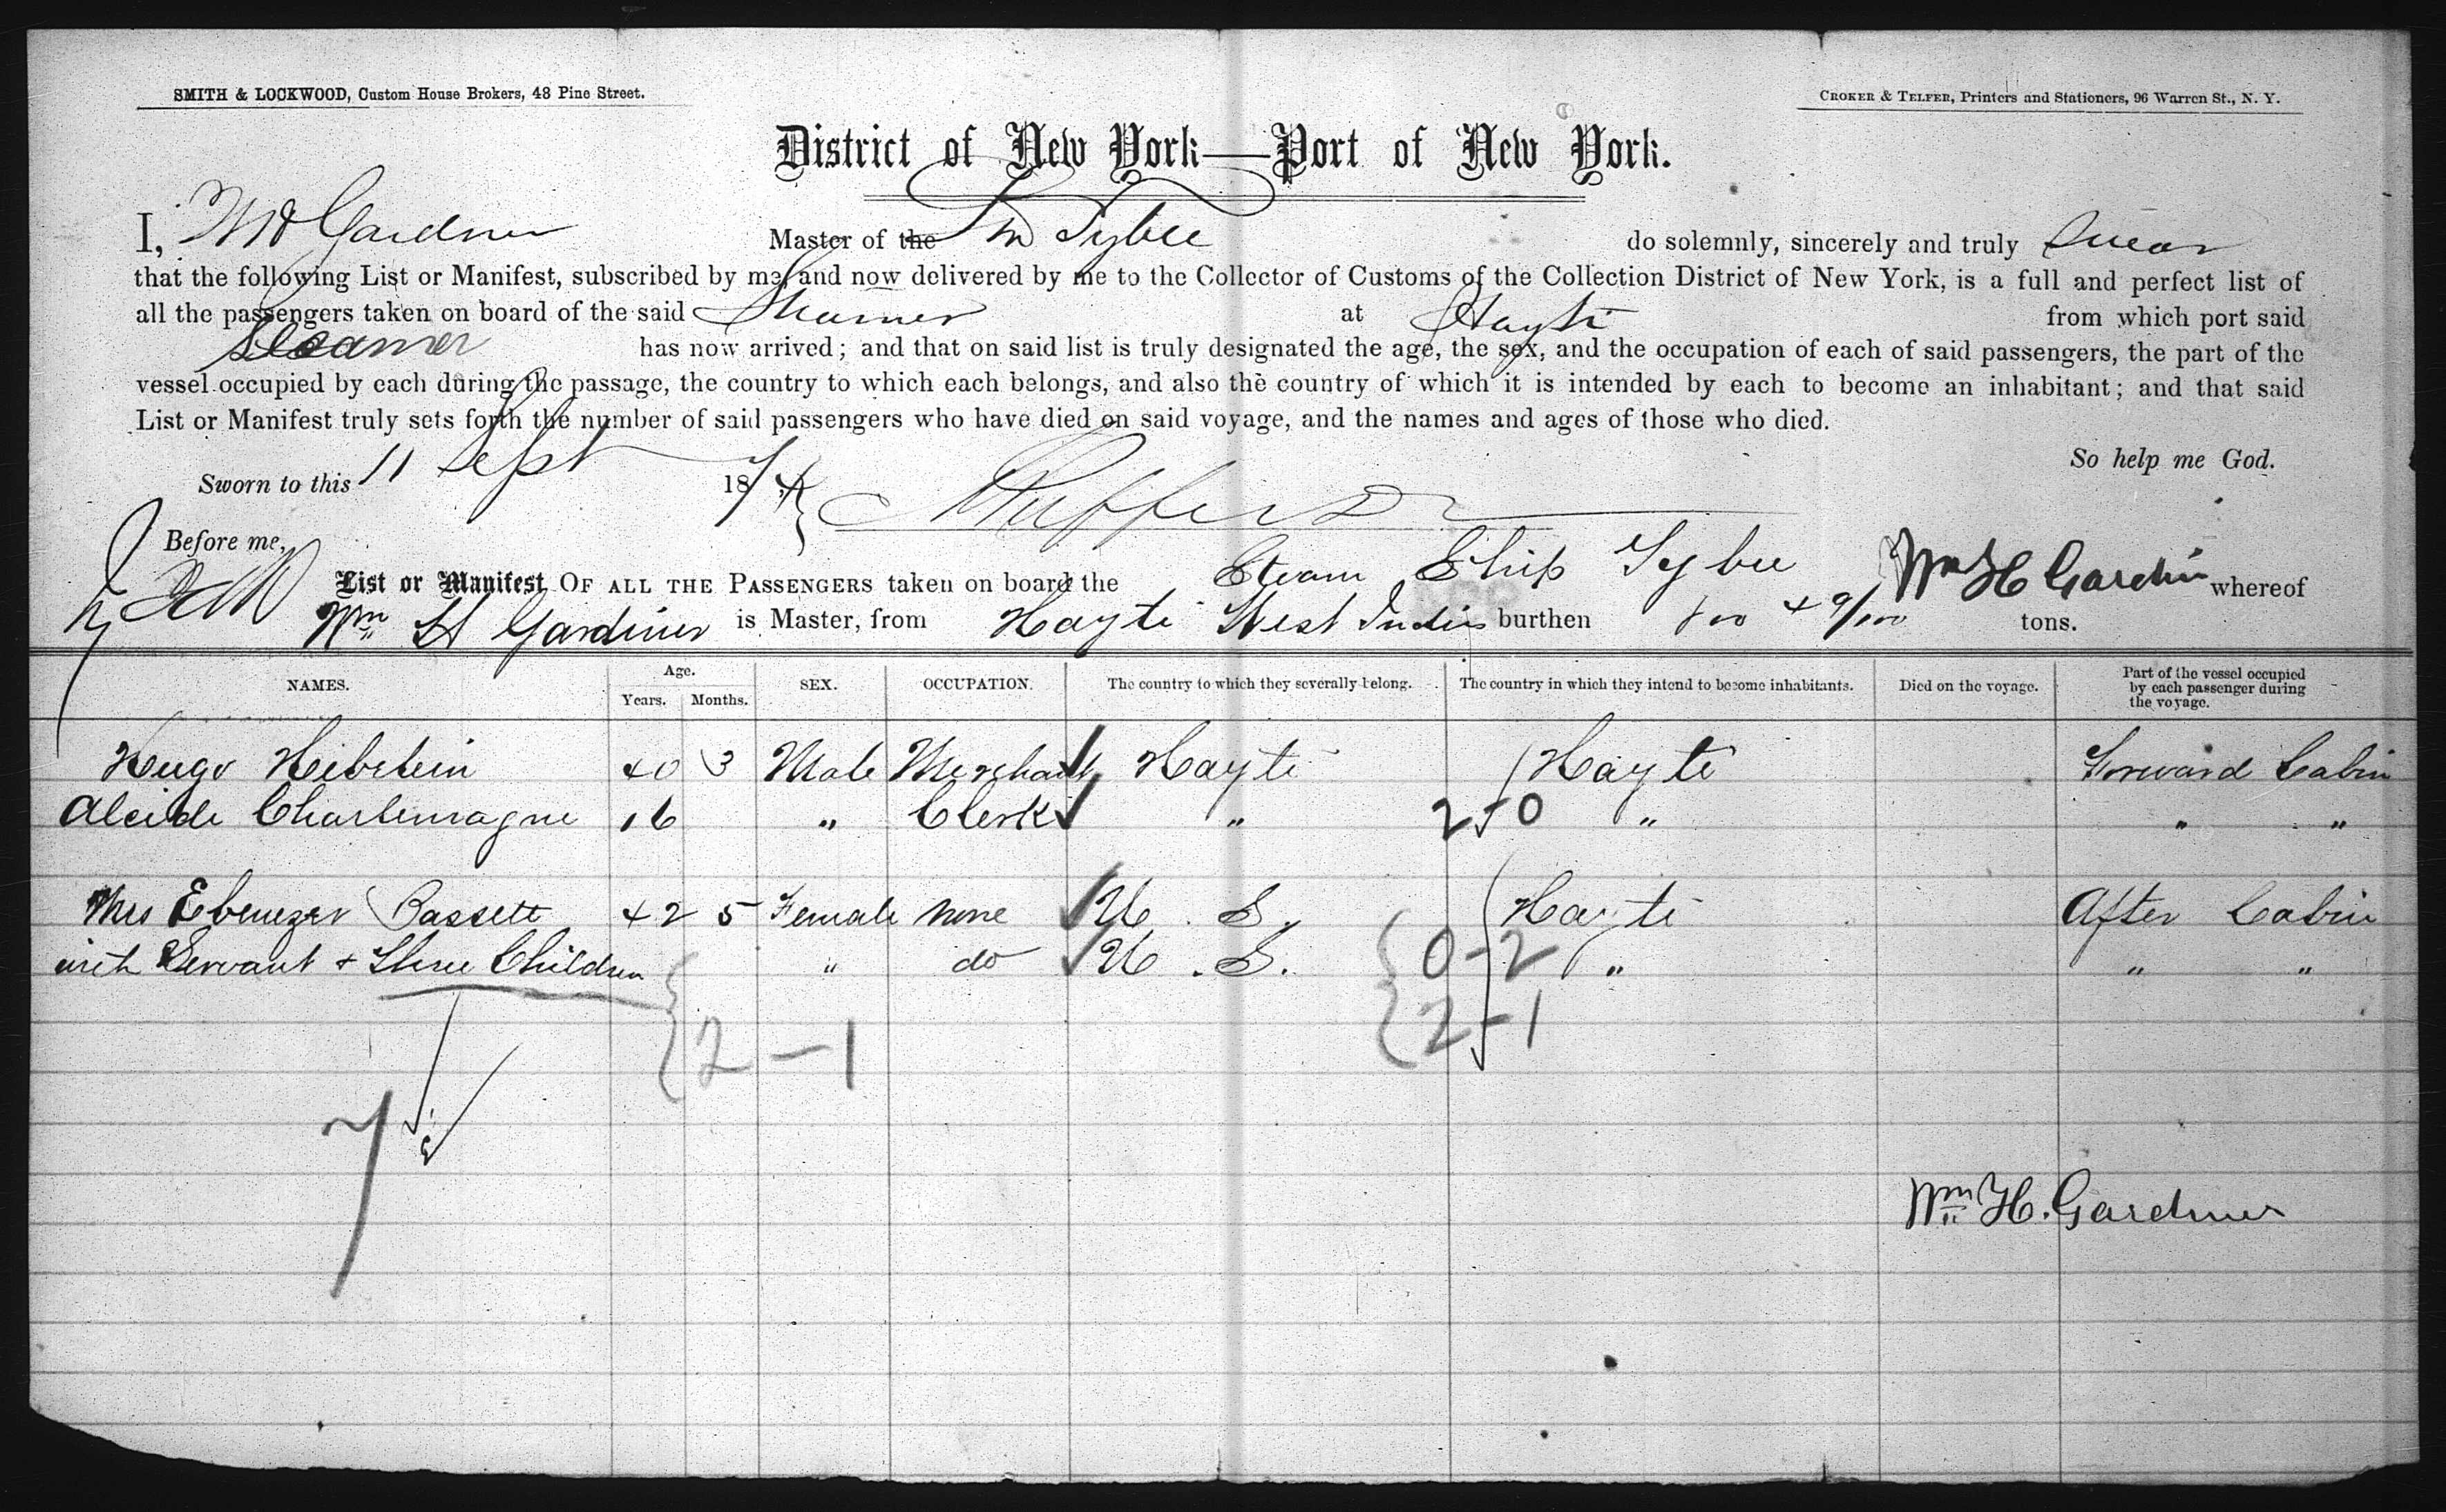 SMITH & LOCKWOOD, Custom House Brokers, 48 Pine Street.
CROKER & TELFER, Printers and Stationers, 96 Warren St., N. Y.
District of New York—Port of New York.
I, Gardner Master of the Tybee do solemnly, sincerely and truly swear
that the following List or Manifest, subscribed by me, and now delivered by me to the Collector of Customs of the Collection District of New York, is a full and perfect list of
all the passengers taken on board of the said Steamer at Hayti from which port said
Steamer has now arrived; and that on said list is truly designated the age, the sex, and the occupation of each of said passengers, the part of the
vessel occupied by each during the passage, the country to which each belongs, and also the country of which it is intended by each to become an inhabitant; and that said
List or Manifest truly sets forth the number of said passengers who have died on said voyage, and the names and ages of those who died.
So help me God.
Sworn to this 11 Sept 1874
Before me,
List or Manifest OF ALL THE PASSENGERS taken on board the Steam Ship Tybee Wm H Gardner whereof
Wm H Gardiner is Master, from Hayti West Indies burthen tons.
NAMES. Age. Years. Months. SEX. OCCUPATION. The country to which they severally belong. The country in which they intend to become inhabitants. Died on the voyage. Part of the vessel occupied by each passenger during the voyage.
Hugo 40 3 Male Merchant Hayti Hayti Forward Cabin
Alcide Charlemagne 16 " Clerk " 2-0 " " "
Mrs Ebenezer Bassett 42 5 Female none U. S. Hayti After Cabin
with Servant + Three Children " do U. S. 0-2 " " "
2-1 2-1
7
Wm H. Gardner